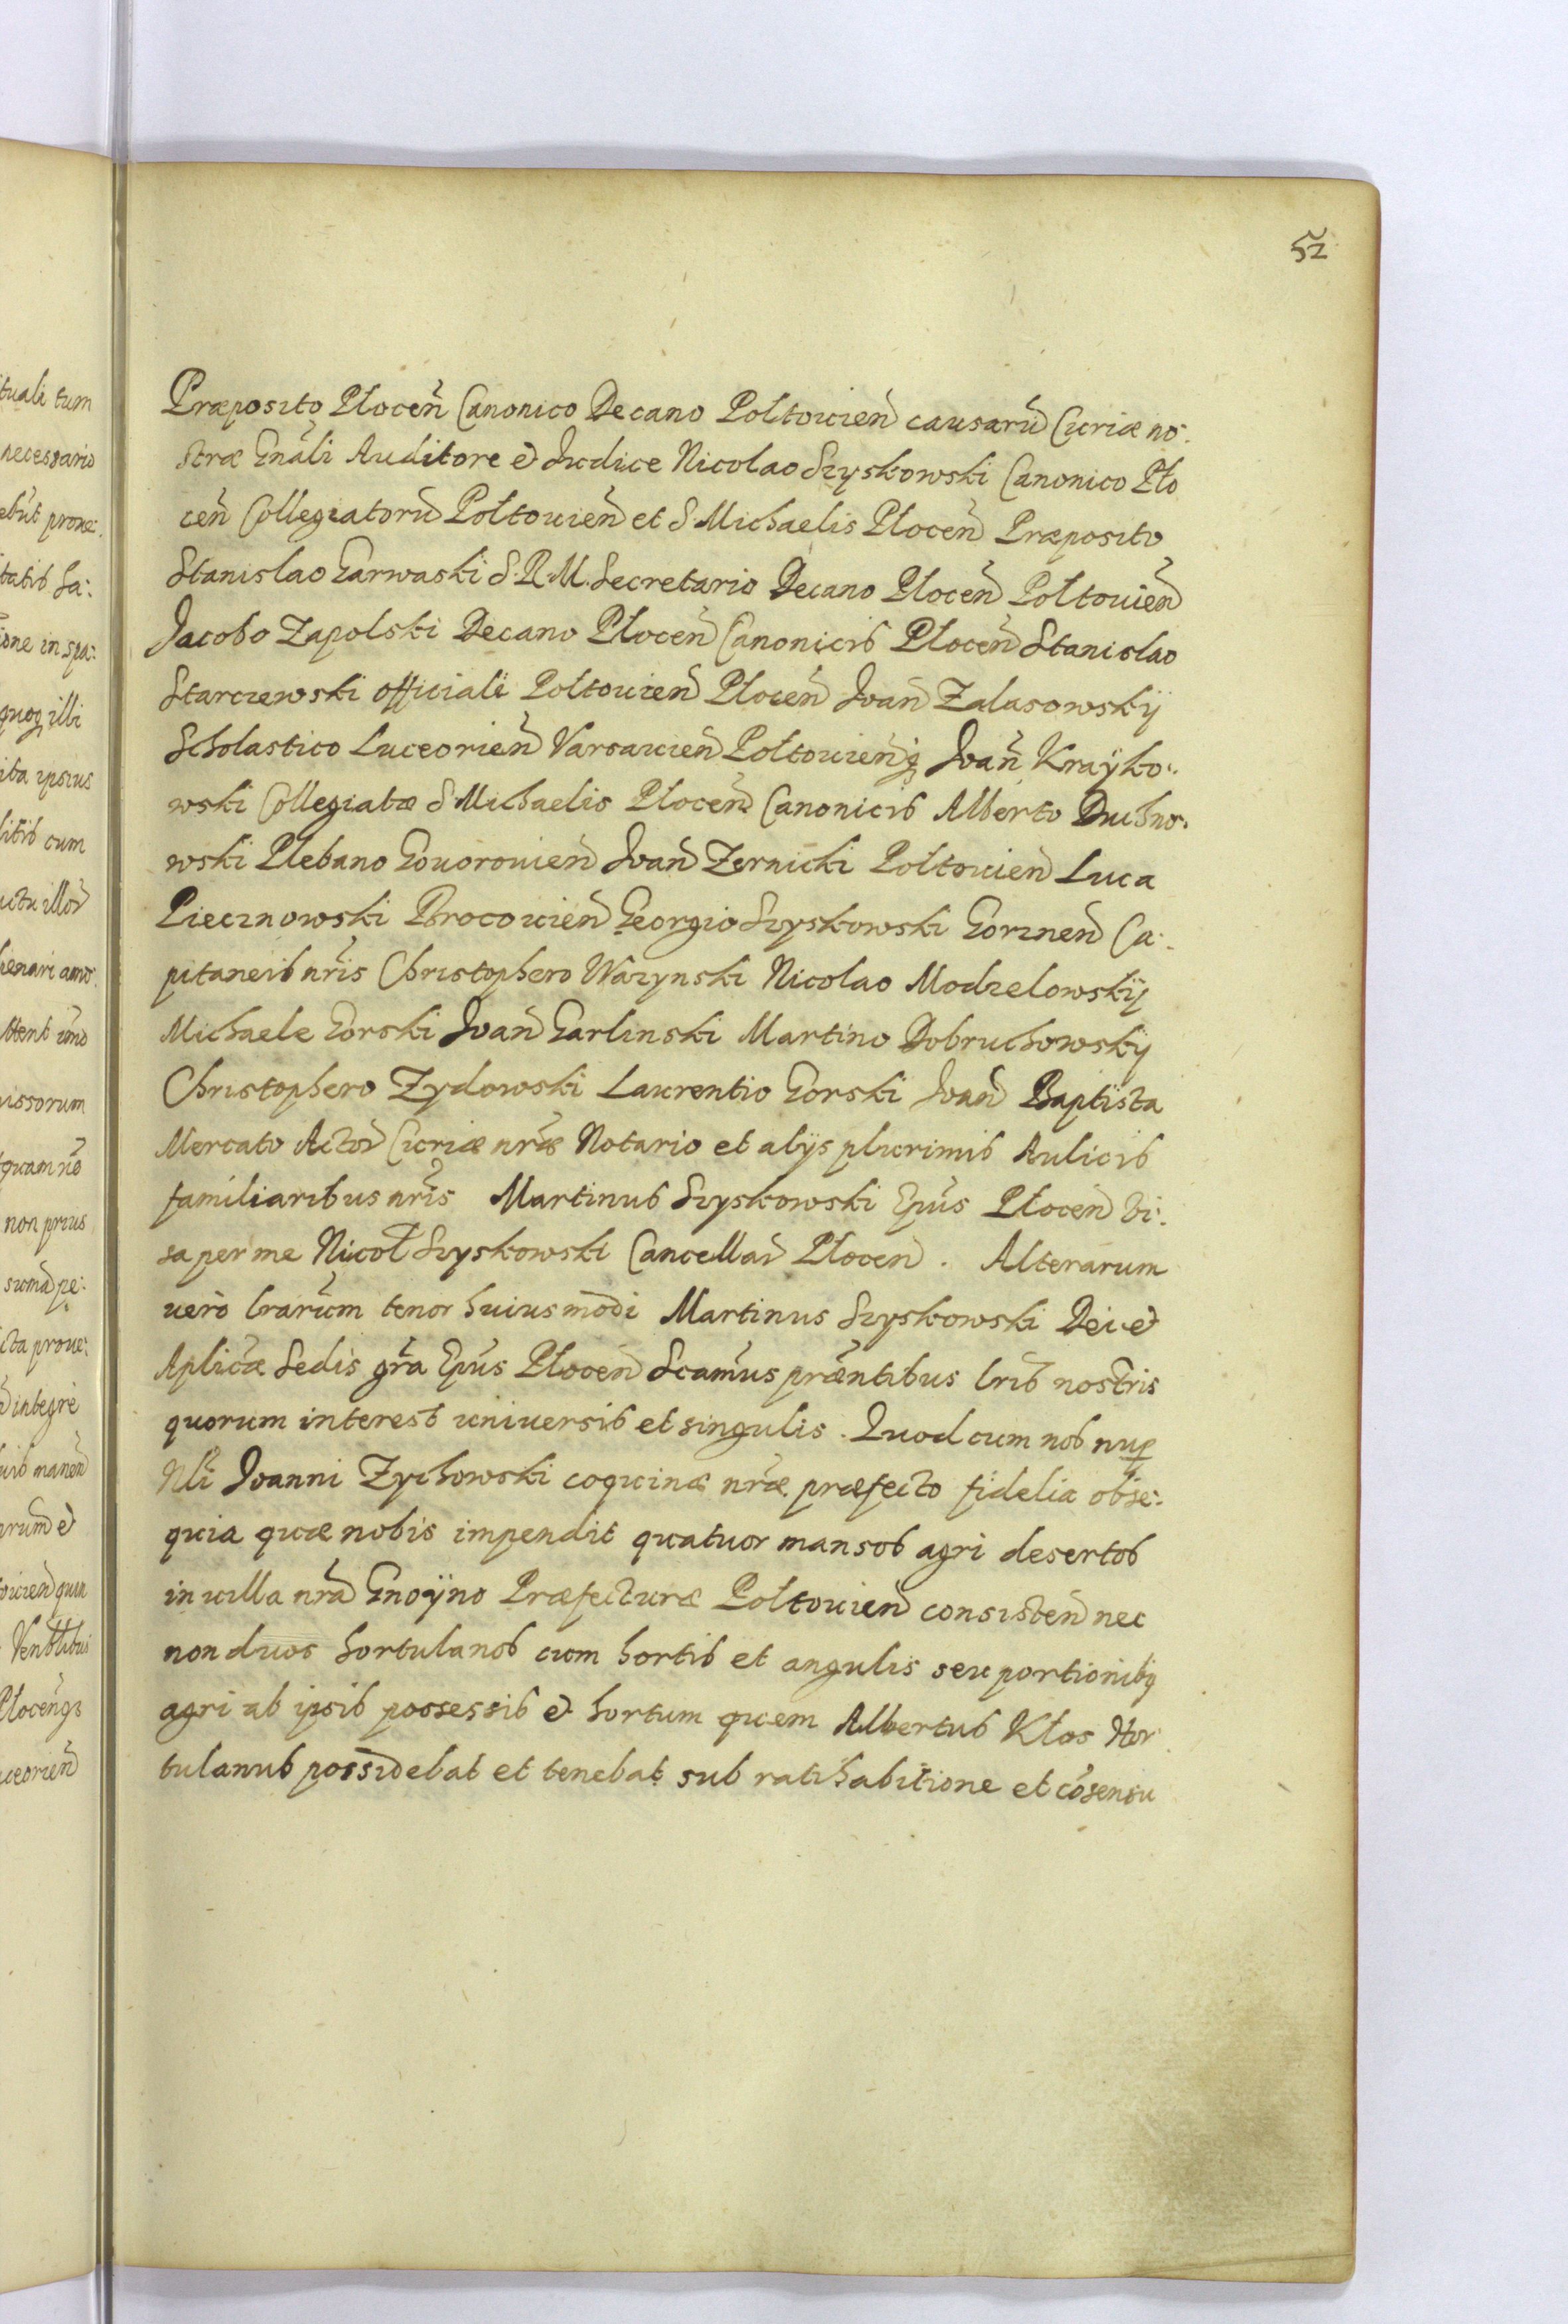 52
Præposito Plocen̄ Canonico Decano Poltouien̄ causarū Curiæ no:
stræ Gn̄ali Auditore et Judice Nicolao Szyskowski Canonico Plo
cen̄ Collegiatorū Poltouien̄ et S Michaelis Plocen̄ Præposito
Stanislao Garwaski S. R. M. Secretario Decano Plocen̄ Poltouien̄
Jacobo Zapolski Decano Plocen̄ Canonicis Plocen̄ Stanislao
Starczewski officiali Poltouien̄ Plocen̄ Joan̄ Zalasowskÿ
Scholastico Luceorien̄ Varsauien̄ Poltouien̄q̢ Joan̄ Kraÿko:
wski Collegiatæ S Michaelis Plocen̄ Canonicis Alberto Duchno:
wski Plebano Gouorouien̄ Joan̄ Zernicki Poltouien̄ Luca
Piecznowski Brocouien̄ Georgio Szyskowski Gorznen̄ Ca:
pitaneis nr̄is Christophero Wazynski Nicolao Modzelowskÿ
Michaele Gorski Joan̄ Garlinski Martino Dobruchowskÿ
Christophero Zydowski Laurentio Gorski Joan̄ Baptista
Mercato Actor̄ Curiæ nr̄æ Notario et alÿs plurimis Aulicis
familiaribus nr̄is Martinus Szyskowski Ep̄us Plocen̄ Vi:
sa per me Nicol̄ Szyskowski Cancellar̄ Plocen̄. Alterarum
uerò l̄rarum tenor huiusmodi Martinus Szyskowski Dei et
Ap̄licæ Sedis gr̄a Ep̄us Plocen̄ Scamus præn̄tibus l̄ris nostris
quorum interest uniuersis et singulis. Quod cum nos nup̱
Nl̄i Joanni Zychowski coquinæ nr̄æ præfecto fidelia obse:
quia quæ nobis impendit quatuor mansos agri desertos
in uilla nr̄a Gnoÿno Præfecturæ Poltouien̄ consisten̄ nec
non duos hortulanos cum hortis et angulis seu portionibq̢
agri ab ipsis possessis et hortum quem Albertus Klos Hor
tulanus possidebat et tenebat sub ratihabitione et cōsensu